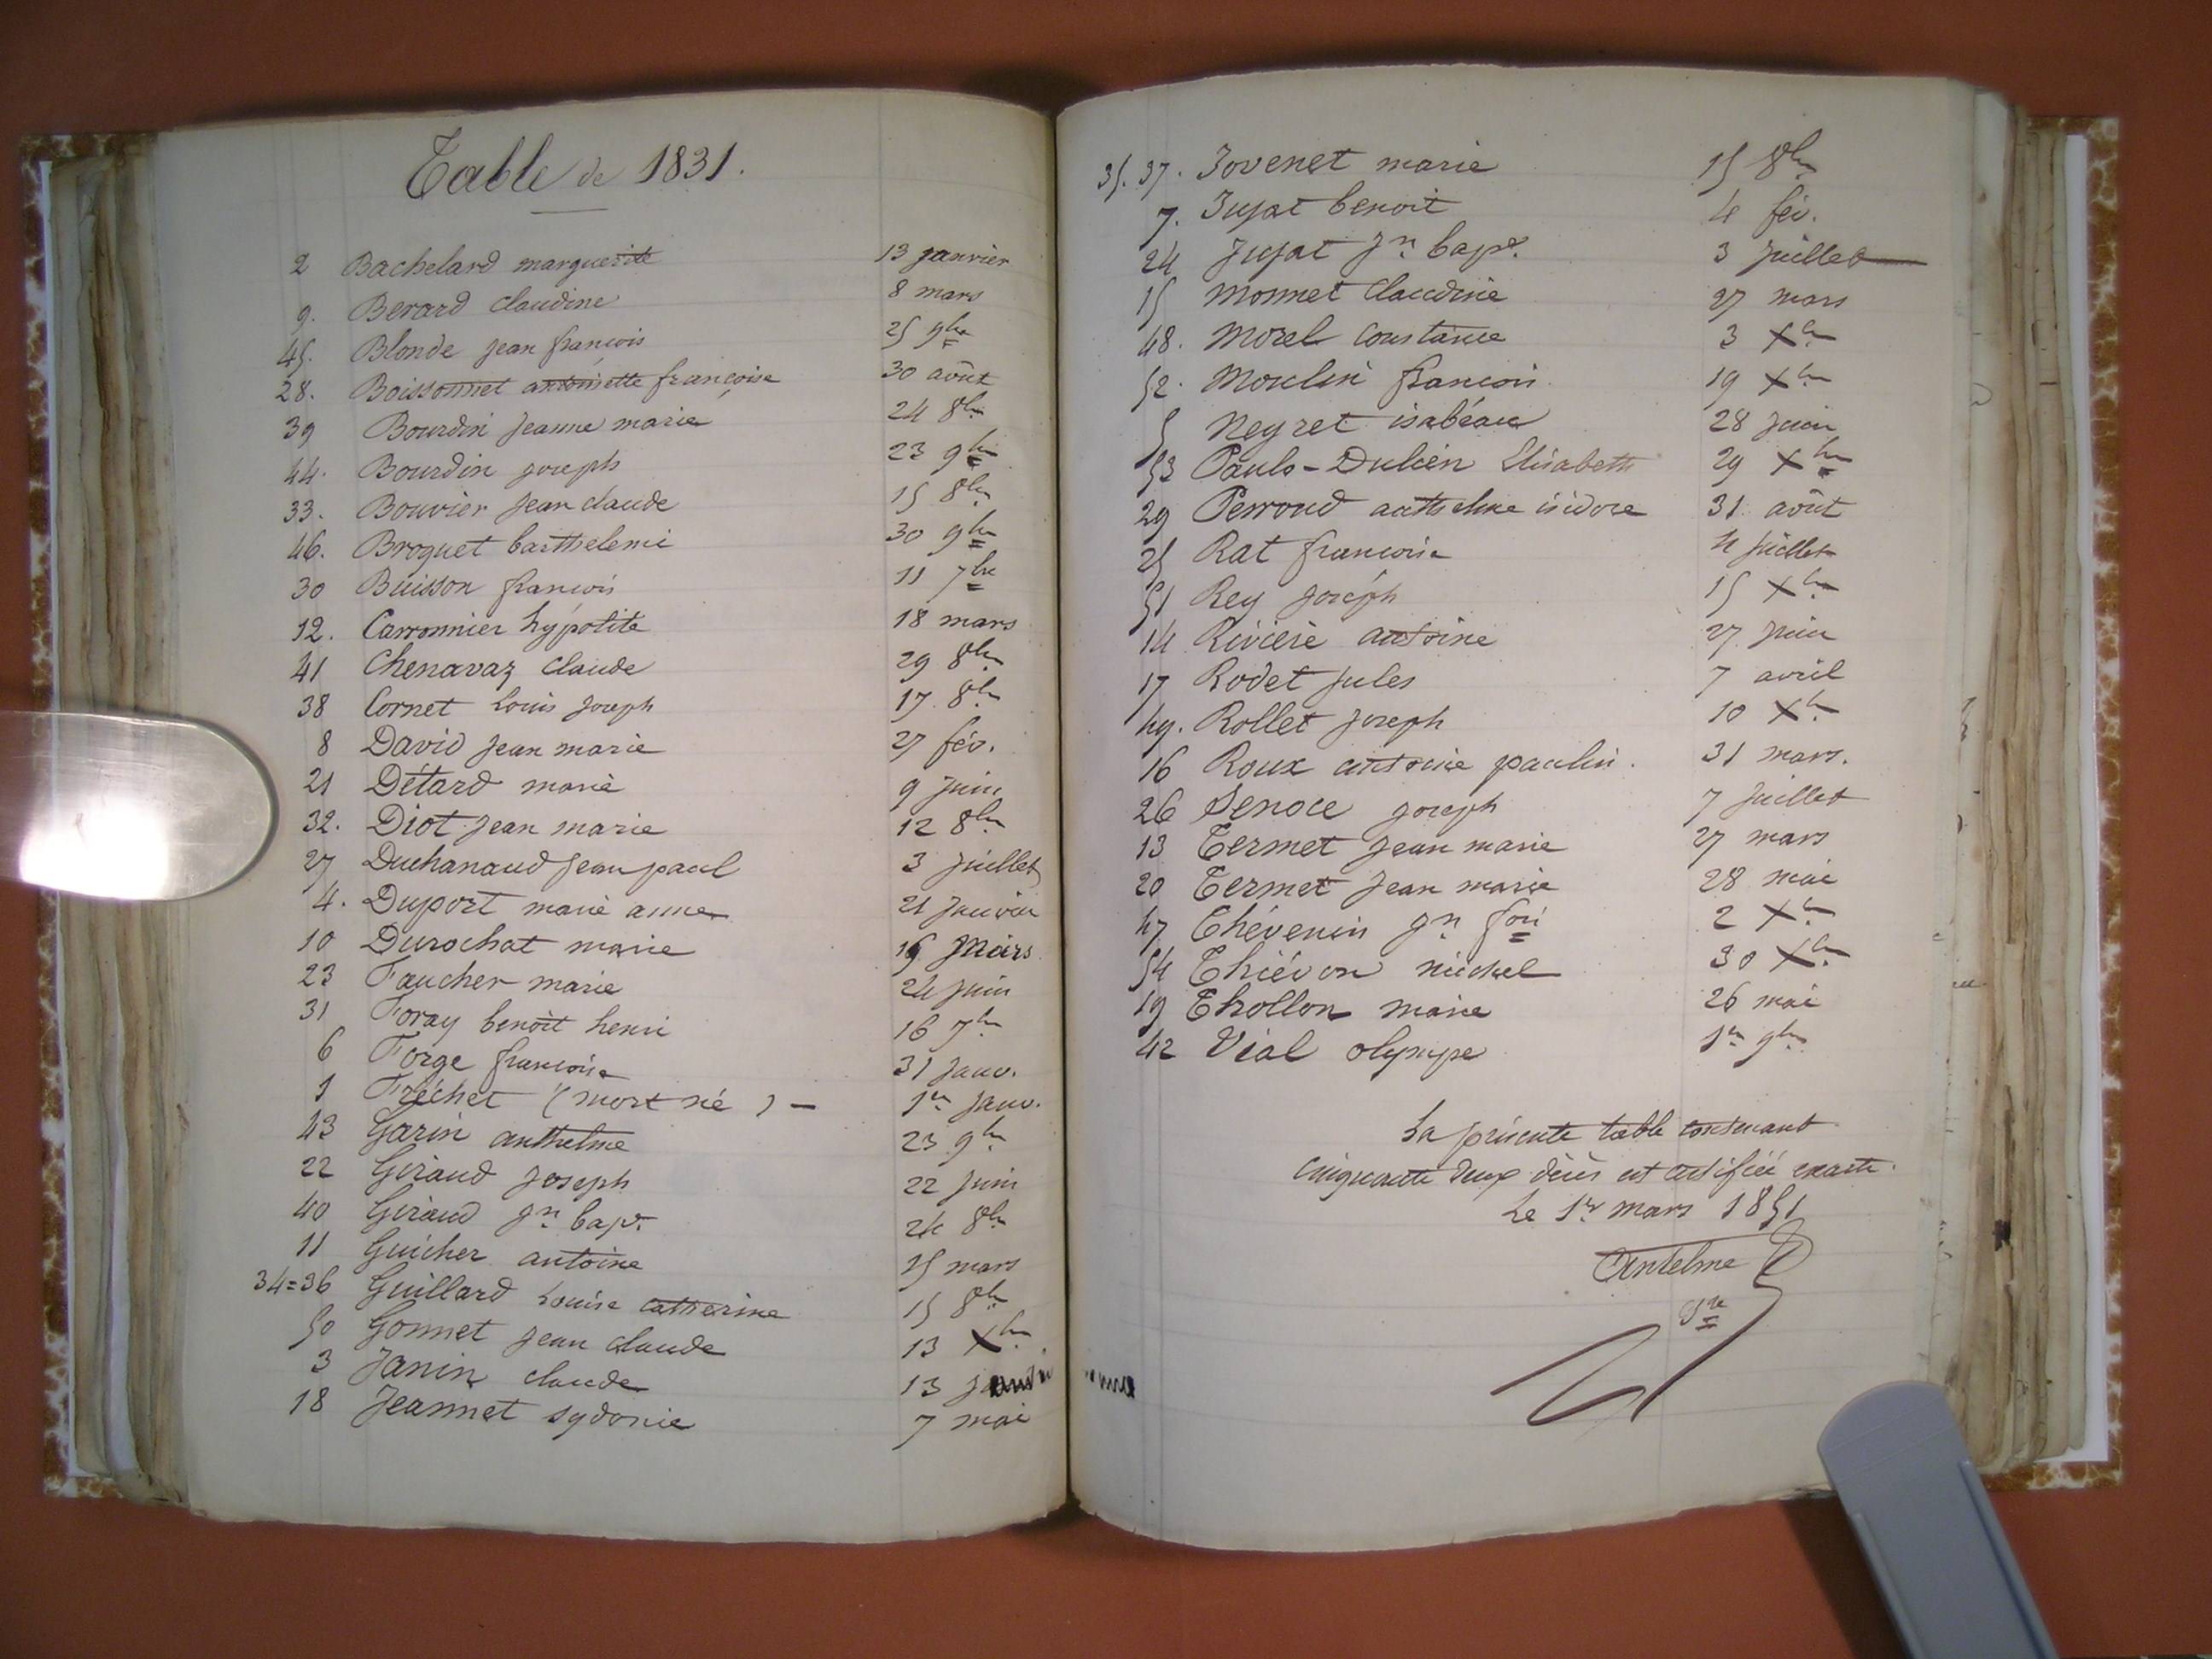 Table de 1831.
2 Bachelard marguerite 13 janvier
9. Berard claudine 8 mars
45. Blonde jean francois 25 9bre
28. Boissonnet antoinette françoise 30 août
39 Bourdin jeanne marie 24 8bre
44. Bourdin joseph 23 9bre
33. Bouvier jean claude 15 8bre
46. Broquet barthelemi 30 9bre
30 Buisson francois 11 7bre
12. Carronnier hypolite 18 mars
41 Chenavaz claude 29 8bre
38 Cornet Louis joseph 17 8bre
8 David jean marie 27 fév.
21 Détard marie 9 juin
32. Diot jean marie 12 8bre
27 Duchanaud jean paul 3 juillet
4. Duport marie anne 21 janvier
10 Durochat marie 16 Mars
23 Faucher marie 24 juin
31 Foray benoît henri 16 7bre
6 Forge francoise 31 janv.
1 Fréchet (mort né) — 1er janv.
43 Garin anthelme 23 9bre
22 Giraud joseph 22 juin
40 Giraud jn bapt. 24 8bre
11 Guicher antoine 15 mars
34=36 Guillard Louise catherine 15 8bre
50 Gonnet jean claude 13 Xbre
3 Janin claude 13
18 Jeannet sydonie 7 mai
35. 37. Jovenet marie 15 8bre
7. Jujat benoit 4 fév.
24 Jujat jn bapt. 3 juillet
15 Monnet claudine 27 mars
48. Morel constance 3 Xbre
52. Moulin francois 19 Xbre
5 Neyret isabéau 28 juin
53 Pauls-Dulien Elisabeth 29 Xbre
29 Perroud anthelme isidore 31 août
25 Rat francoise 4 juillet
51 Rey joseph 15 Xbre
14 Riviere antoine 27 juin
17 Rodet jules 7 avril
49. Rollet joseph 10 Xbre
16 Roux antoine paulin. 31 mars.
26 Senoce joseph 7 juillet
13 Termet jean marie 27 mars
20 Termet jean marie 28 mai
47 Thévenin jn fois 2 Xbre
54 Thiévon michel 30 Xbre
19 Thollon marie 26 mai
42 Vial olympe 1er 9bre
La présente table contenant
cinquante deux décès est certifiée exacte.
Le 1er mars 1851
Antelme